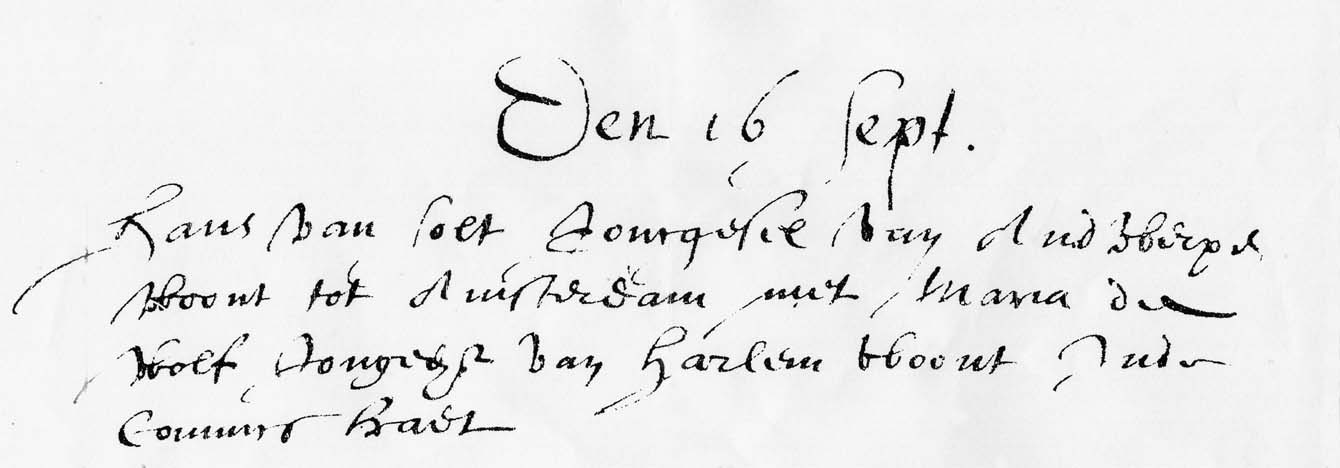 Den 16 sept.
Hans van solt Jongesel van Andtwerpe
woont tot Amsterdam met Maria de
wolf Jongedr van Harlem woont Inde
Connincstraet